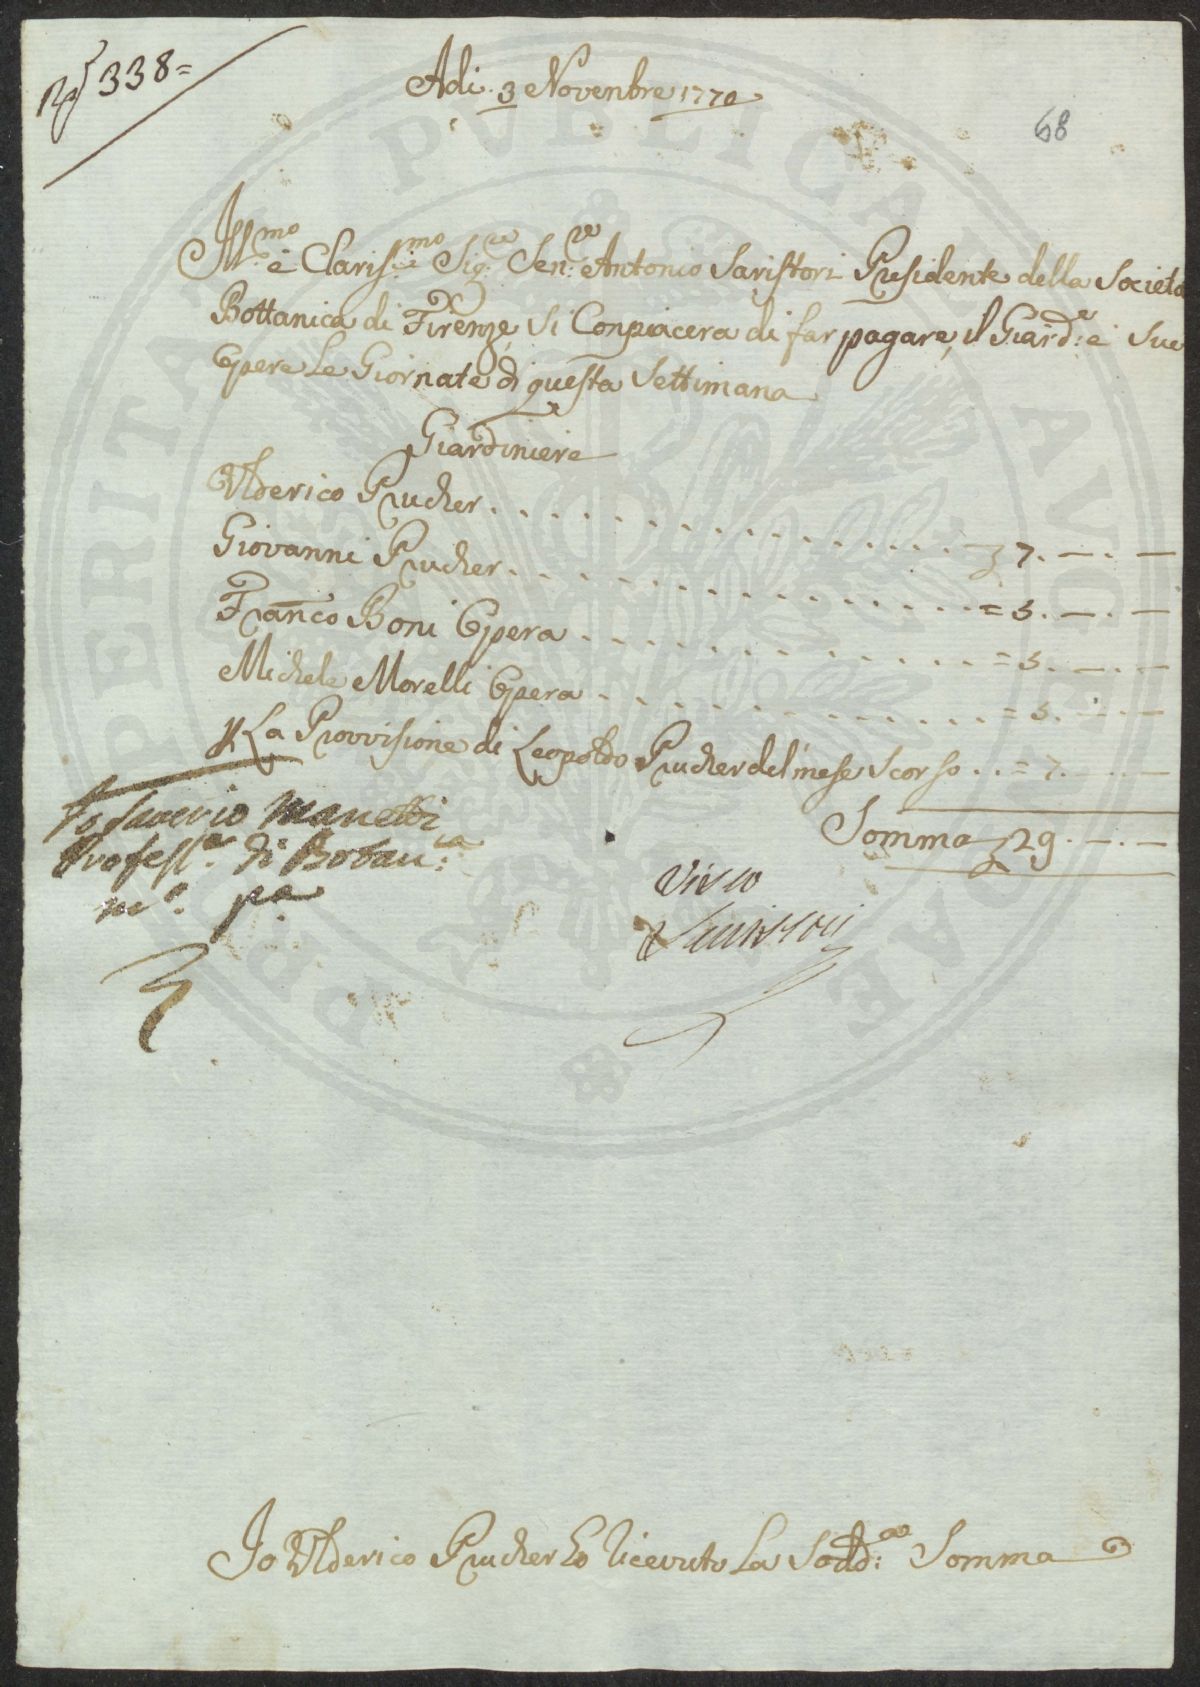 338=
Adi. 3 Novenbre 1770
68
Ill.mo e Claris.mo Sig.re Sen.re Antonio Saristori Presidente della Societa
Bottanica di Firenze, Si Conpiacera di far pagare, il Giard.e e Sue
Opere Le Giornate di questa Settimana
Giardiniere
Ulderico Prucher . . . . . . . . . . . . . . 7. — . —
Giovanni Prucher . . . . . . . . . . . . . . = 5. — . —
Franco Boni Opera . . . . . . . . . . . . . = 5. — . —
Michele Morelli Opera . . . . . . . . . . . = 5. — . —
La Provvisione di Leopoldo Prucher del mese Scorso . . = 7. — . —
Somma 29. — . —
Io Saverio Manetti
Profess.e di Botan.ca
m.o p.a
Visto
Serristori
Io Ulderico Prucher ho riceuto La Sodd.a Somma
PERITAS PVBLICAE AVG